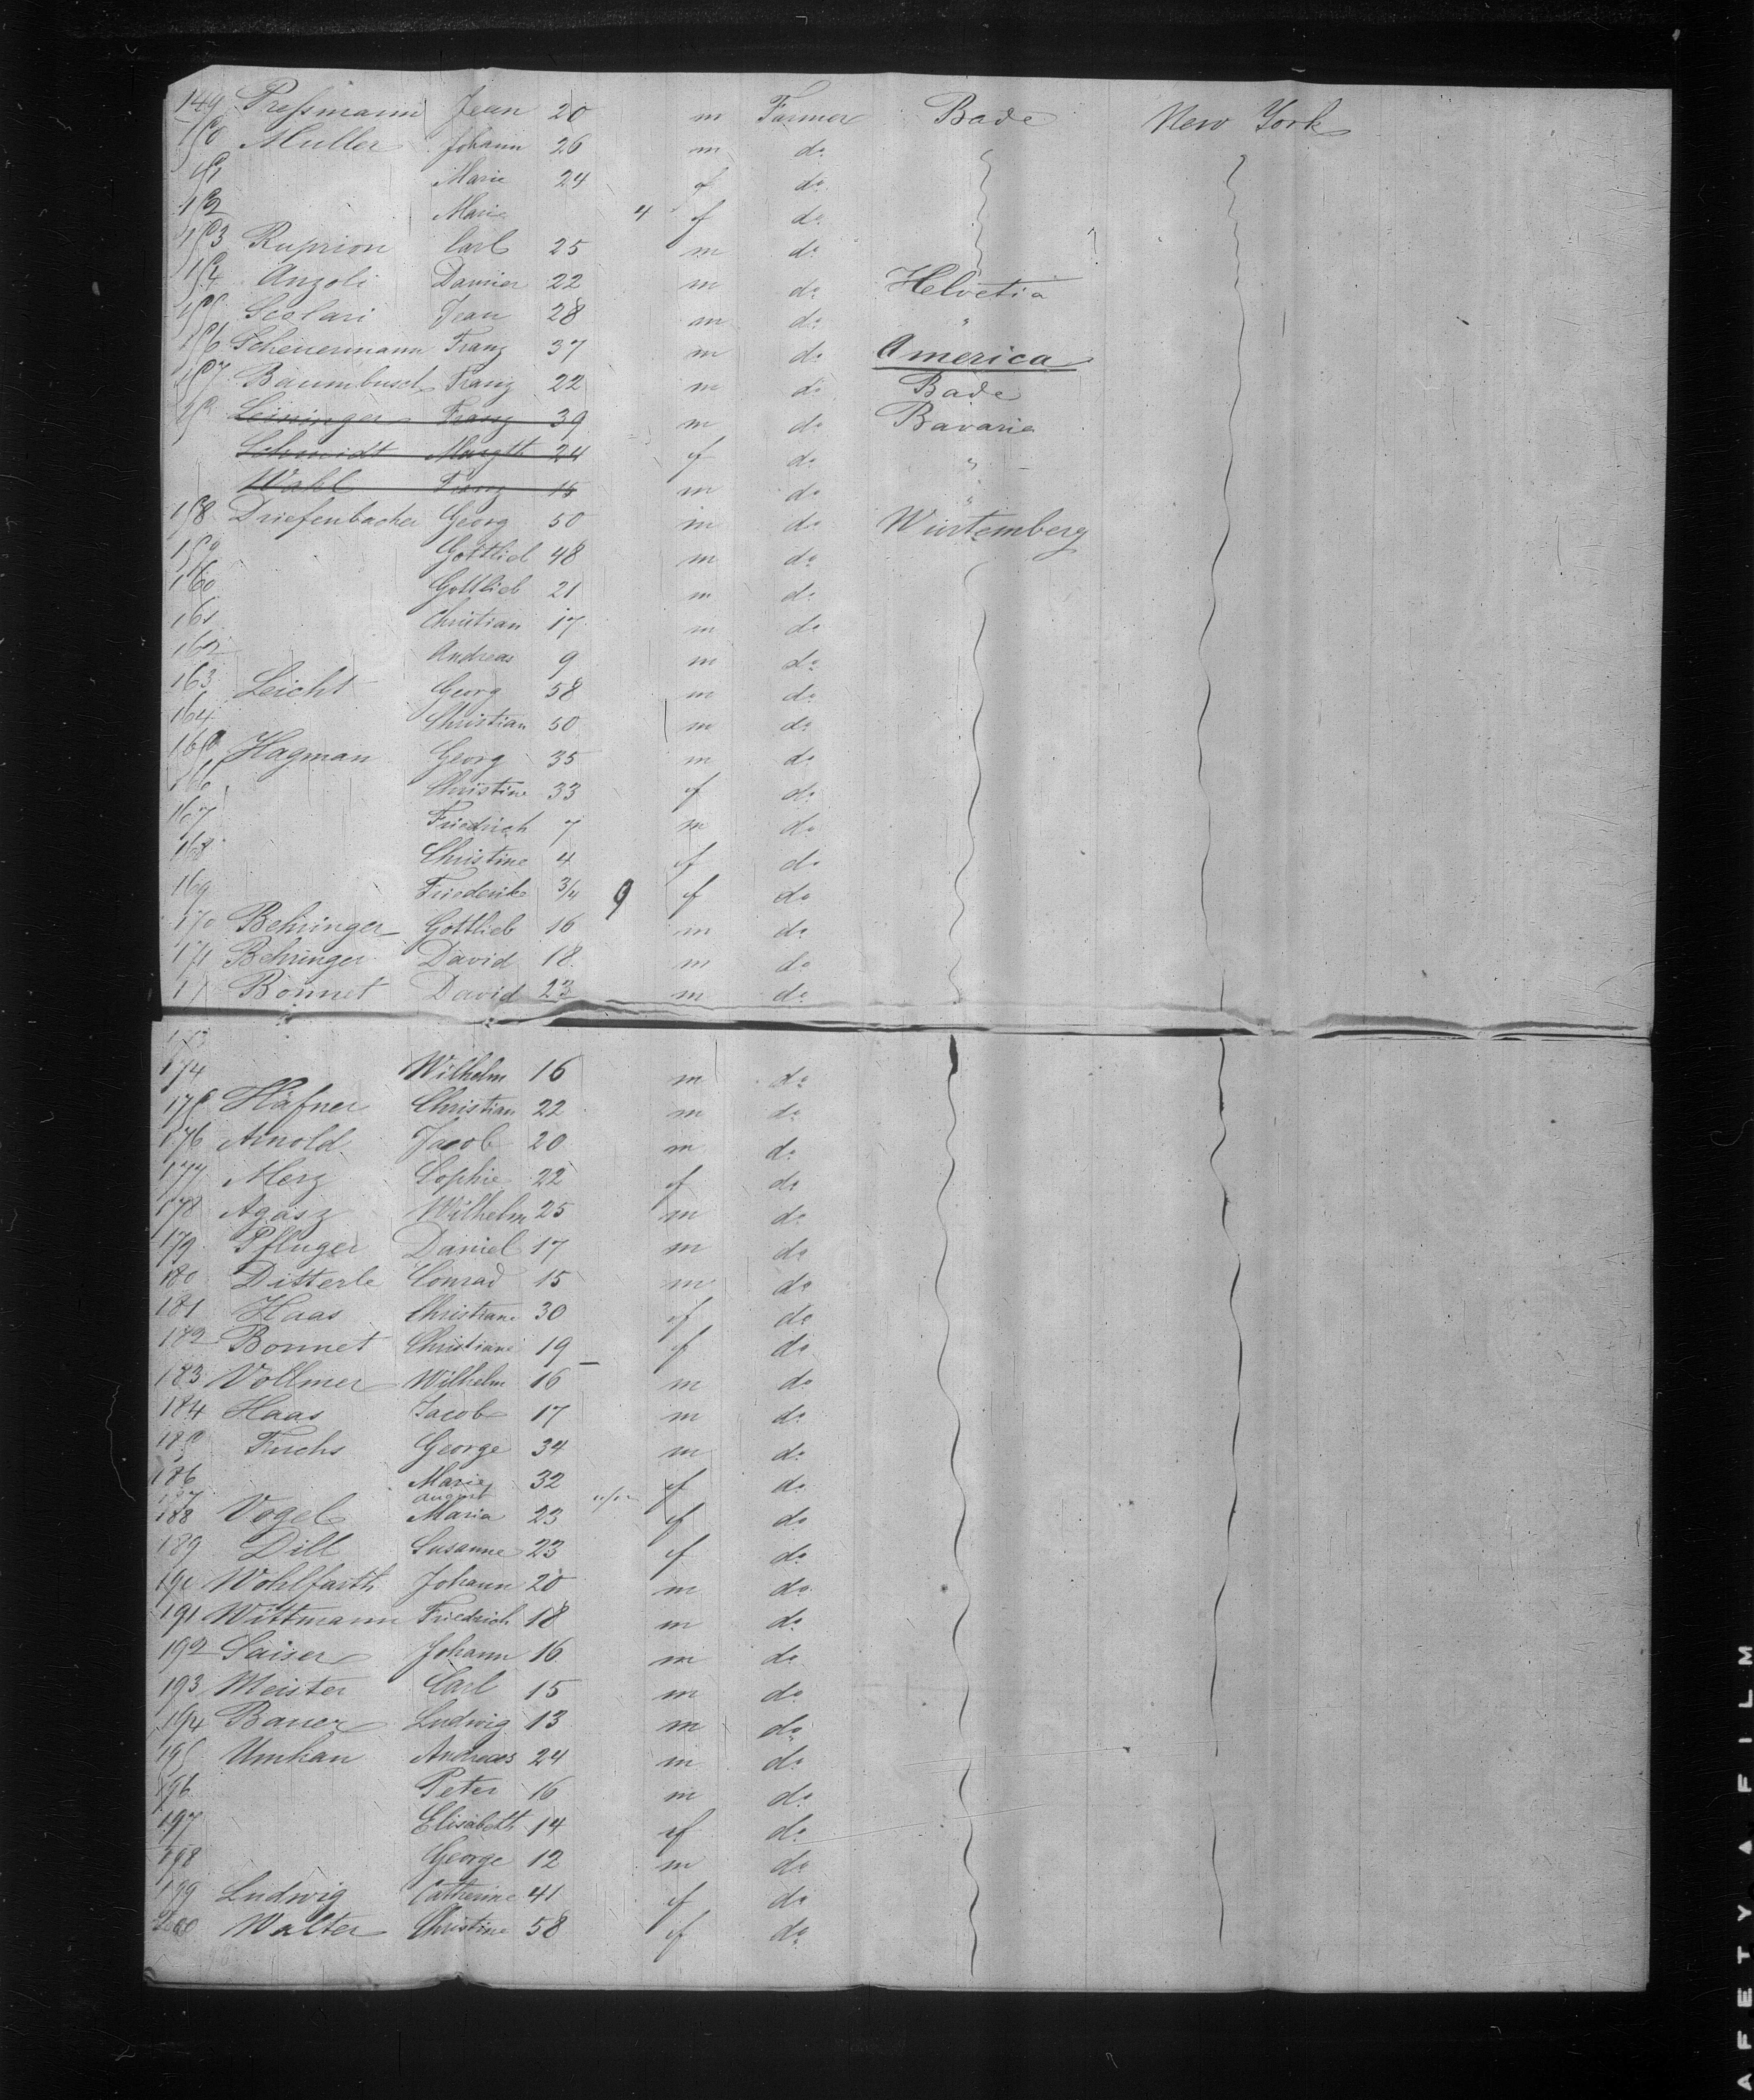 149 Preſsmann Jean 20 m Farmer Bade New York
150 Muller Johann 26 m do
151 Marie 24 f do
152 Marie 4 f do
153 Ruprion Carl 25 m do
154 Anzoli Damier 22 m do Helvetia
155 Scolari Jean 28 m do "
156 Scheuermann Franz 37 m do America
157 Baumbusch Franz 22 m do Bade
Leininger Franz 39 m do Bavaria
Schmidt Margth 24 f do "
Wahl Franz 15 m do "
158 Driefenbacher Georg 50 m do Würtemberg
159 Gottlieb 48 m do
160 Gottlieb 21 m do
161 Christian 17 m do
162 Andreas 9 m do
163 Leicht Georg 58 m do
164 Christian 50 m do
165 Hagman Georg 35 m do
166 Christine 33 f do
167 Friedrich 7 m do
168 Christine 4 f do
169 Friederike 3/4 9 f do
170 Behringer Gottlieb 16 m do
171 Behringer David 18 m do
17 Bonnet David 23 m do
174 Wilhelm 16 m do
175 Häfner Christian 22 m do
176 Arnold Jacob 20 m do
177 Merz Sophie 22 f do
178 Agasz Wilhelm 25 m do
179 Pfluger Daniel 17 m do
180 Ditterle Conrad 15 m do
181 Haas Christiane 30 f do
182 Bonnet Christiane 19 f do
183 Vollmer Wilhelm 16 m do
184 Haas Jacob 17 m do
185 Fuchs George 34 m do
186 Marie 32 f do
187 August
188 Vogel Maria 23 f do
189 Dill Susanne 23 f do
190 Wohlfarth Johann 20 m do
191 Wittmann Friedrich 18 m do
192 Saiser Johann 16 m do
193 Meister Carl 15 m do
194 Bauer Ludwig 13 m do
195 Umhau Andreas 24 m do
196 Peter 16 m do
197 Elisabeth 14 f do
198 George 12 m do
199 Ludwig Catherine 41 f do
200 Walter Christine 58 f do
AFETY A FILM